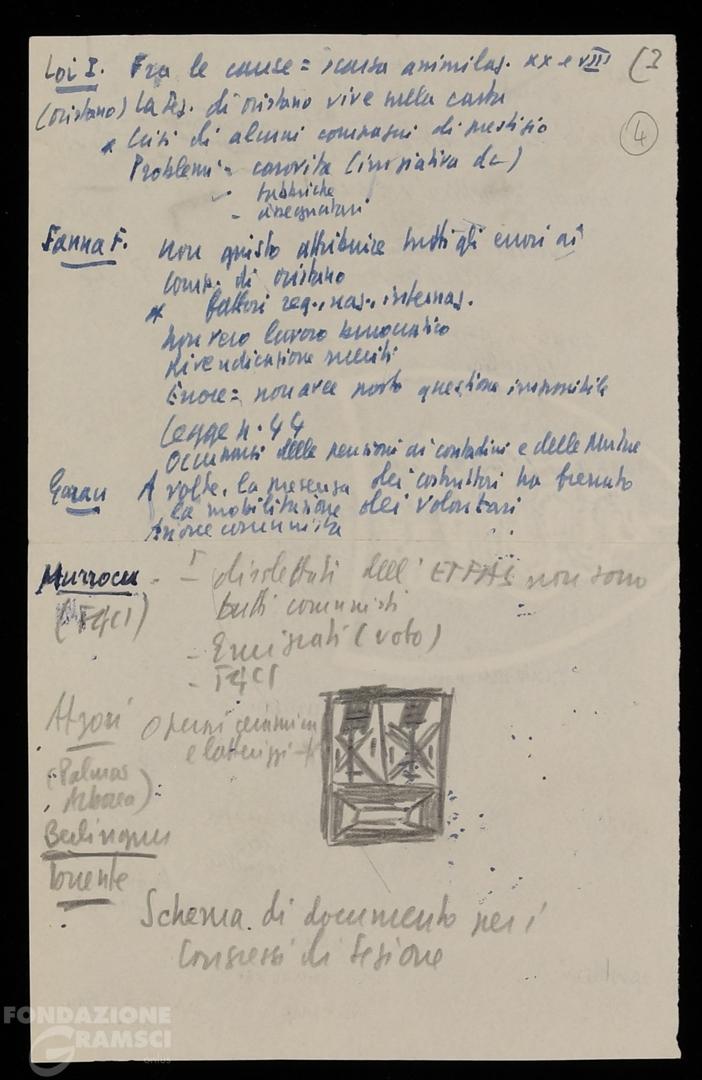 Loi I. Fra le cause = scarsa assimilas. XX e VIII (3
(Oristano) La Fes. di Oristano vive sulla carta
4
* Criti di alcuni compagni di prestigio
Problemi = carovita (iniziativa d.c.)
- fabbriche
- assegnatari
Sanna F. non giusto attribuire tutti gli errori ai
comp. di oristano
* fattori reg., nas., internas.
non vero lavoro burocratico
Rivendicazione meriti
Errore = non aver posto questione
Legge n. 44
Occuparsi delle pensioni ai contadini e delle
Garau A volte, la presenza dei costruttori ha frenato
la mobilitazione dei volontari
Azione comunista
Murrocu - I disdettati dell'ETFAS non sono
(FGCI) tutti comunisti
- Emigrati (voto)
- FGCI
Atzori Operai ceramica
e laterizi
(Palmas
Arborea)
Berlinguer
Torrente
Schema di documento per i
Congressi di Sezione
FONDAZIONE
GRAMSCI
onlus